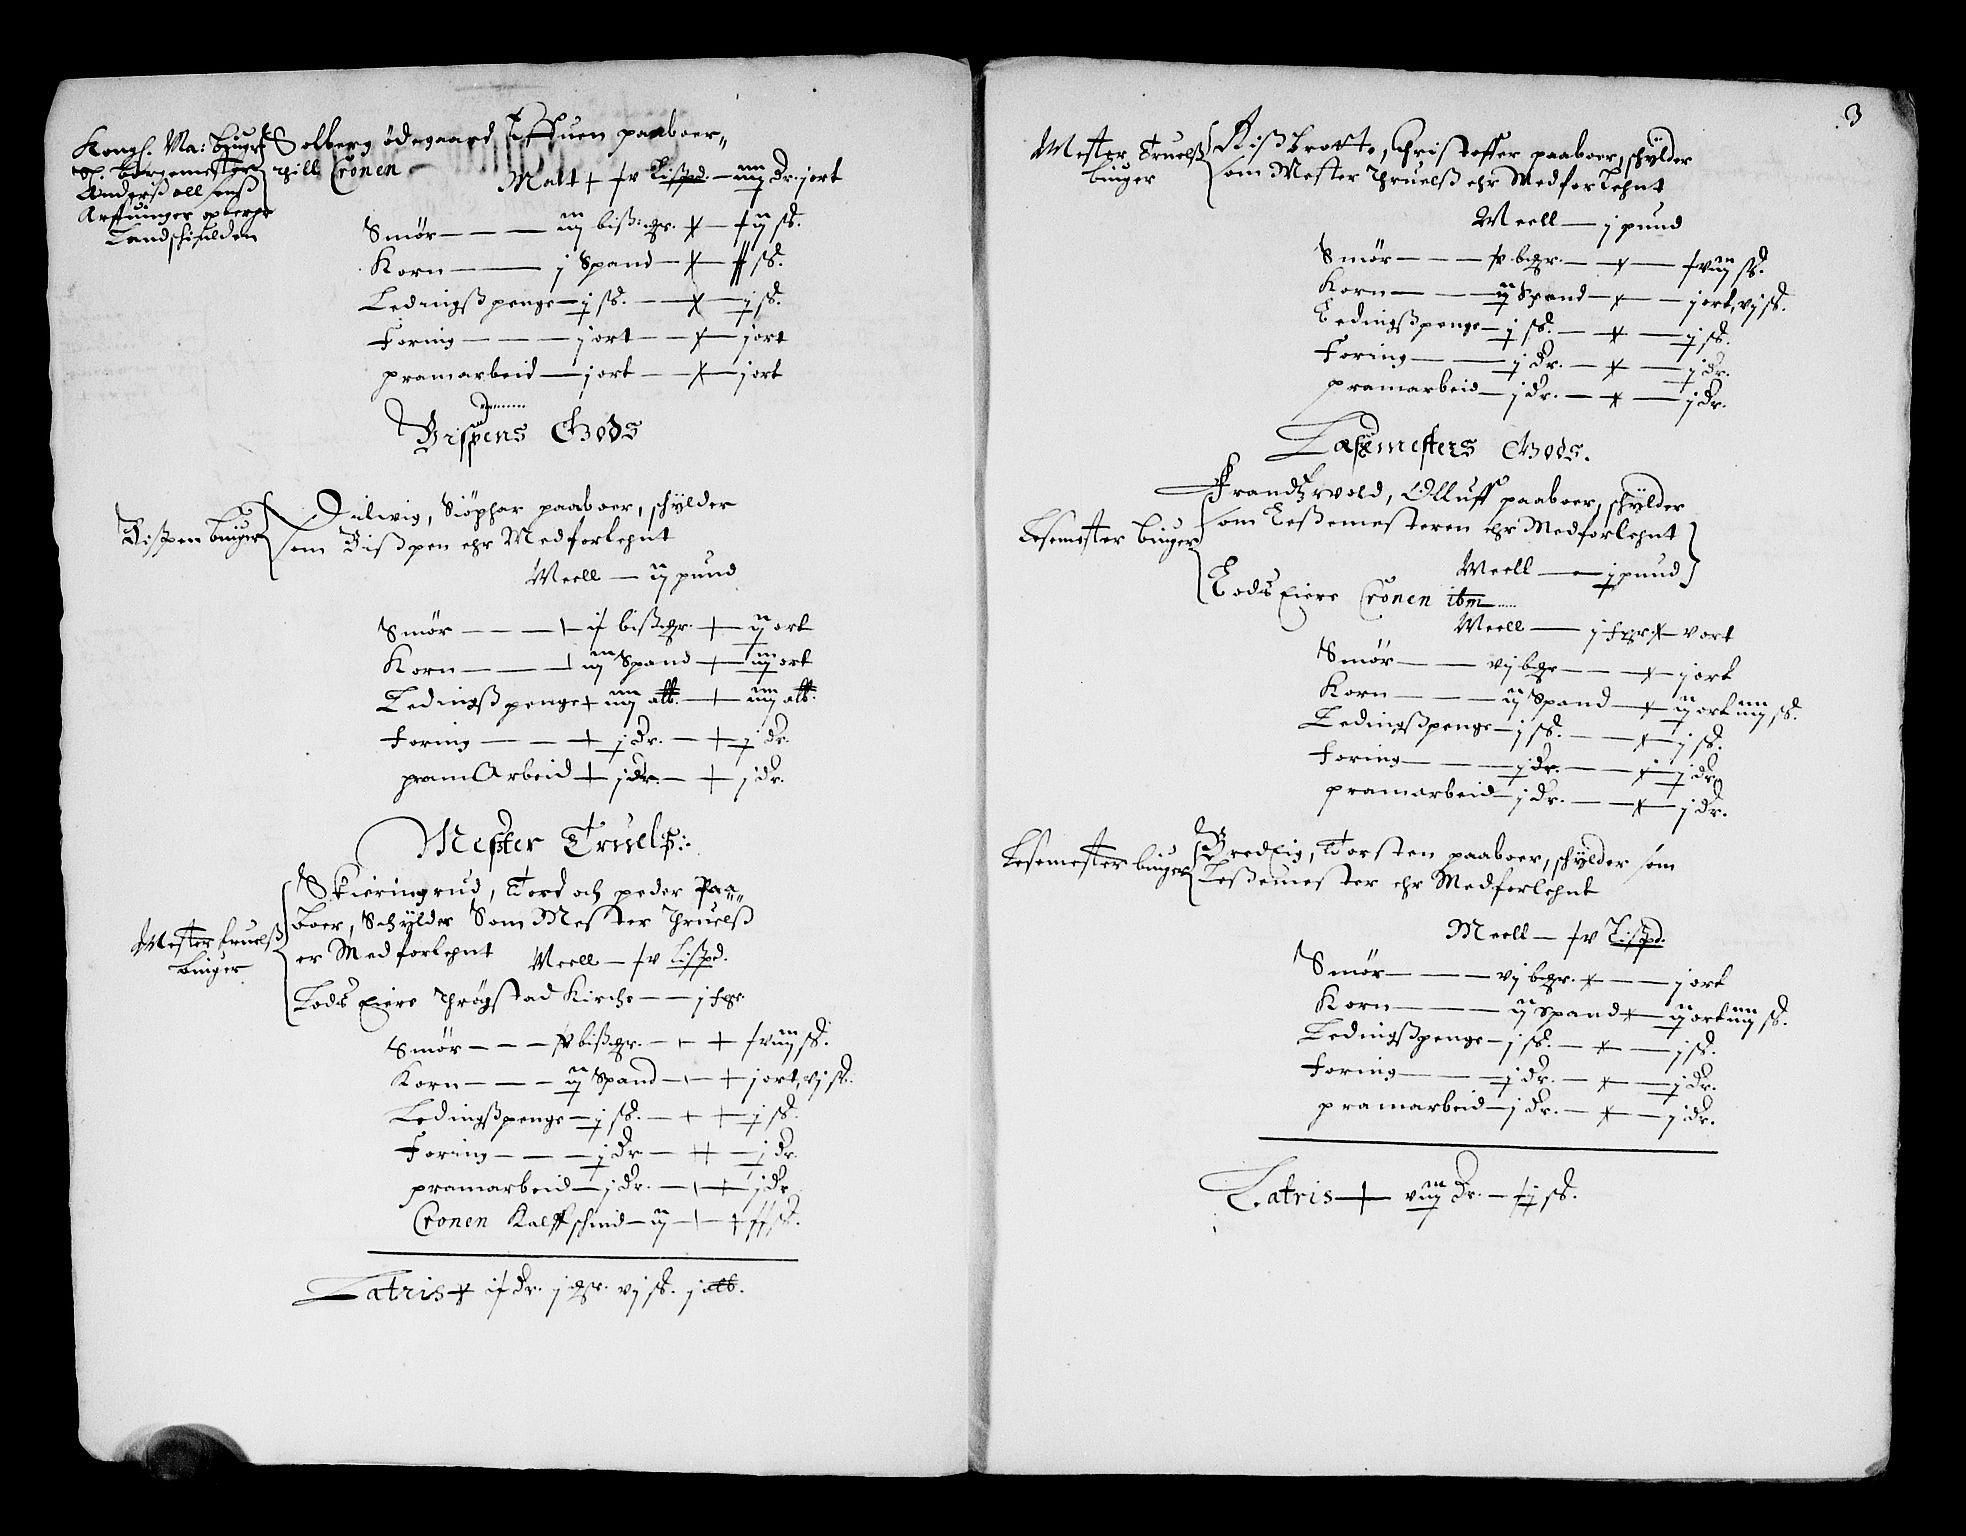 Kongl. Ma: Bÿugr
Sl. borgemester
Anderß oll sens
Arffuinger opberge
Landschÿlden
Solberg ödegaard Tiffuen paaboer
till Cronen
Malt + fv Lißpd. — iiij Dr. j ort
Smör — — — iij biß: gr. + — f ij sß.
Korn — — j Spand — + — ff sß.
Ledingßpenge — j sß. — + — j sß.
Foring — — — j ort — + — j ort
pramarbeid — j ort — + — j ort
Bispens Gods
Bißpen buiger
Dulwig, Siöphar paaboer, schÿlder
som Bißpen ehr Medforlehnt
Meell — ij pund
Smör — — — + if bißgr. + — ij ort
Korn — — — + iij Spand + — iij ort
Ledingßpenge + iiij alb. — + — iiij alb.
Foring — — — + j Dr. — + — j Dr.
pramArbeid + j dr. — + — j dr.
Mester Truelß:
Mester truelß
buiger
Skieringrud, Tord och peder Paa
boer, Schÿlder Som Mester Thruelß
er Medforlehnt
Meell — fv Lißpd.
Lods Eiere Thrögstad Kirche — — j fgr.
Smör — — — fv bißgr. — + + fviij sß.
Korn — — — ij Spand — + + j ort, vj sß.
Ledingßpenge — j sß. — + + j sß.
Foring — — — j Dr. — + + — j Dr.
pramarbeid — j Dr. — + + j Dr.
Cronen Kalffschind — ij — + + ff sß.
Latris + if Dr. j gr. vj sß. j alb.
3
Mester Truelß
buiger
Rißbrotte, Christoffer paaboer, schÿlder
som Mester Thruelß ehr Medforlehnt
Meell — j pund
Smör — — — fv bgr. — + — fviij sß.
Korn — — — ij Spand — + — j ort, vj sß.
Ledingßpenge — j sß. — + — j sß.
Foring — — — j Dr. — + — j Dr.
pramarbeid — j Dr. — + — j Dr.
Læsemesters Gods.
Lesemester buiger
Frandtzvold, Olluff paaboer, schÿlder
som Leßemesteren ehr Medforlehnt
Meell — — j pund
Lods Eiere Cronen ibm
Meell — j fgr. + v ort
Smör — — vj bgr — — + — j ort
Korn — — — ij Spand — + ij ort iiij sß.
Ledingßpenge — j sß. — — + — j sß.
Foring — — — j Dr. — — + — j Dr.
pramarbeid — j Dr. — — + — j Dr.
Lesemester buiger
Bredlig, Torsten paaboer, schÿlder som
Leßemester ehr Medforlehnt
Meell — fv Lißpd.
Smör — — — vj bgr. + — — j ort
Korn — — — ij Spand + — ij ort iiij sß.
Ledingßpenge — j sß. — + — j sß.
Foring — — — j Dr. — + — j Dr.
pramarbeid — j Dr. — + — j Dr.
Latris + viij Dr. — fij sß.